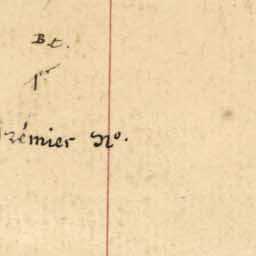 Bt.
1er
Prémier No.